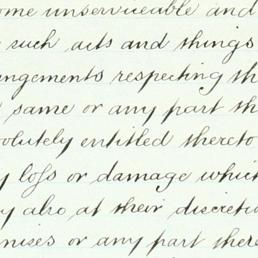 ome unserviceable and
such acts and things
ngements respecting th
same or any part th
olutely entitled thereto
y loss or damage which
y also at their discretio
mises or any part there